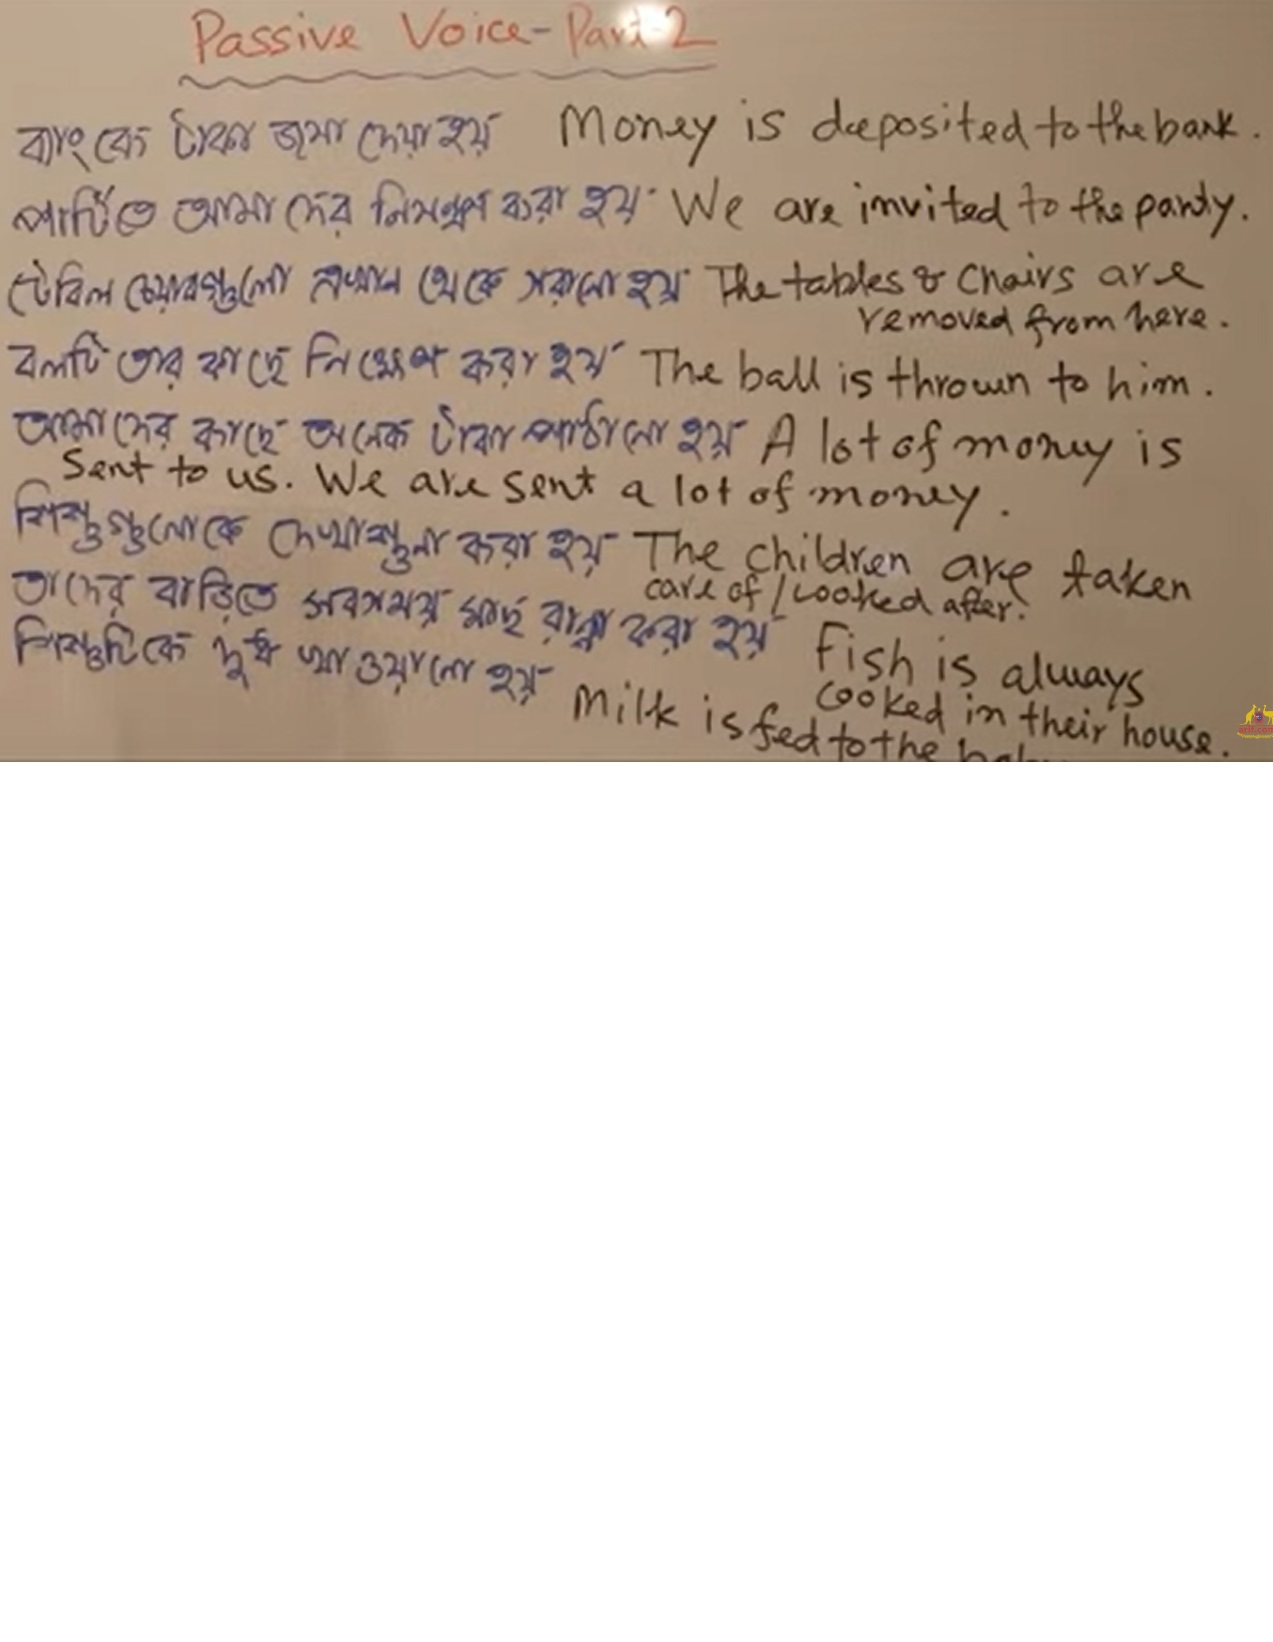 Passive Voice - Part-2
ব্যাংকে টাকা জমা দেয়া হয় Money is deeposited to the bank.
পার্টিতে আমাদের নিমন্ত্রণ করা হয় We are invited to the party.
টেবিল চেয়ারগুলো এখান থেকে সরানো হয় The tables & Chairs are
removed from here.
বলটি তার কাছে নিক্ষেপ করা হয় The ball is thrown to him.
আমাদের কাছে অনেক টাকা পাঠানো হয় A lot of money is
Sent to us. We are sent a lot of money.
শিশুগুলোকে দেখাশুনা করা হয় The children are taken
care of / Looked after.
তাদের বাড়িতে সবসময় মাছ রান্না করা হয় Fish is always
cooked in their house.
শিশুটিকে দুধ খাওয়ানো হয় Milk is fed to the